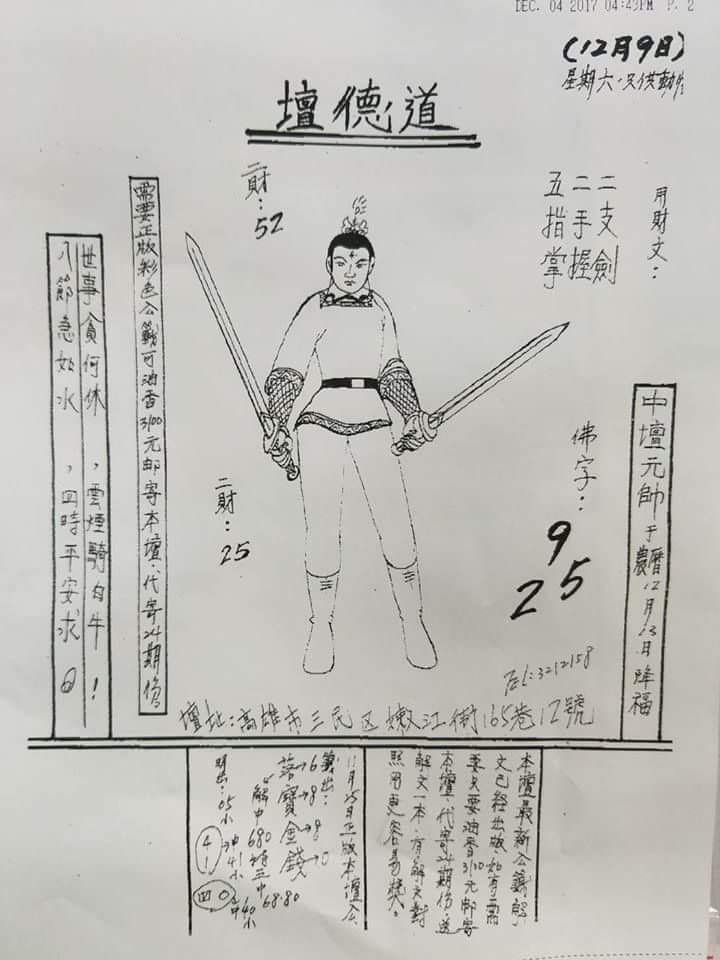 DEC. 04 2017 04:43PM P. 2
(12月9日)
道德壇
用財文：
二支劍
二手握
五指掌
二財：
52
需要正版彩色公籤可油香3100元郵寄本壇、代寄24期份。
世事貪何休，雲煙騎白牛！
八節急如水，四時平安求。
二財：
25
佛字：
9
25
中壇元帥于農曆12月13日降福
TEL:3212158
壇址：高雄市三民区嫩江街165巷12號
本壇最新公籤解
文已經出版、如有需
要只要油香3100元郵寄
本壇、代寄24期份、送
解文一本、有解文對
照用更容易獎。
11月25日正版本壇公
籤出：
落→6
寶→8
金→8
錢→0
解中680
68.80
明出：05小
41
沖41小
四0
中40小